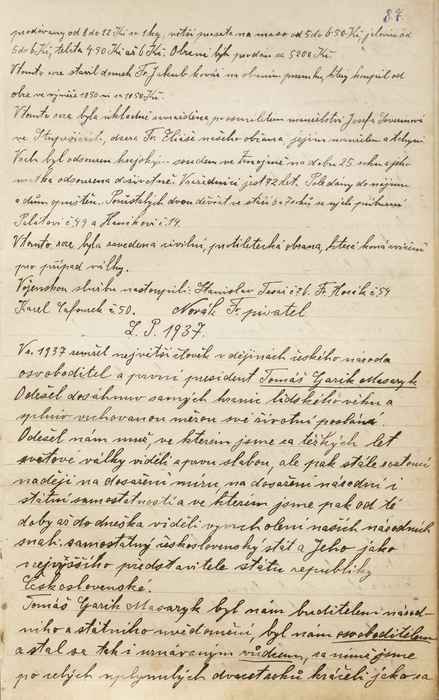 84.
prodávány od 8 do 12 Kč za 1 kg, větší prasata na maso od 5 do 6·50 Kč, jalovice od
5 do 6 Kč, telata 4·50 Kč až 6 Kč. Obecní býk prodán za 5200 Kč.
V tomto roce stavil domek Fr. Jakub kovář na obecním pozemku, který koupil od
obce ve výměře 1850 m za 1850 Kč.
V tomto roce byla úkladně zavražděna po osmiletém manželství Josefa
ve dcera Fr. našeho občana, jejím manželem a tchyní.
Vrah byl odsouzen krajským soudem ve Znojmě na dobu 25 roků a jeho
matka odsouzena doživotně. Vražednici jest 72 let. Pole dány do nájmu
a dům opuštěn. Pozůstalých dvou dívčat ve stáří 3 a 7 roků se ujali příbuzní
č. 49 a č. 14.
V tomto roce byla zavedena civilní protiletecká obrana, která koná cvičení
pro případ války.
Vojenskou službu nastoupili: Stanislav č. 76. Fr. Horák č. 54
Karel č. 50. Novák Fr. pisatel
L. P. 1937.
V r. 1937 zemřel největší člověk v dějinách českého národa
osvoboditel a první president Tomáš Garik Masaryk
Odešel dosáhnuv samých hranic lidského věku a
splniv vrchovanou měrou své životní poslání.
Odešel nám muž, ve kterém jsme za těžkých let
světové války viděli zprvu slabou, ale pak stále rostoucí
naději na dosažení míru, na dosažení národní i
státní samostatnosti a ve kterém jsme pak od té
doby až do dneška viděli vyvrcholení našich národních
snah: samostatný československý stát a Jeho jako
nejvyššího představitele státu republiky
Československé.
Tomáš Garik Masaryk byl nám buditelem národ-
ního a státního uvědomění, byl nám osvoboditelem
a stal se tak i uznávaným vůdcem, za nímž jsme
po celých uplynulých dvacet roků kráčeli jako za